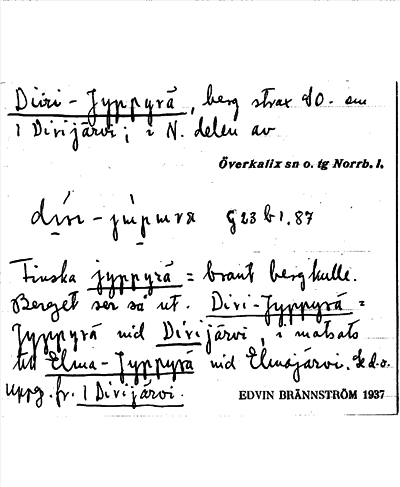 Divi-Jyppyrä, berg strax SO. om
1 Divijärvi; i N. delen av
Överkalix sn o. tg Norrb. l.
G 23 b 1. 87
Finska jyppyrä = brant bergkulle.
Berget ser så ut. Divi-Jyppyrä =
Jyppyrä vid Divijärvi, i motsats
till Elma-Jyppyrä vid Elmajärvi. Se d.o.
uppg. fr. 1 Divijärvi.
EDVIN BRÄNNSTRÖM 1937